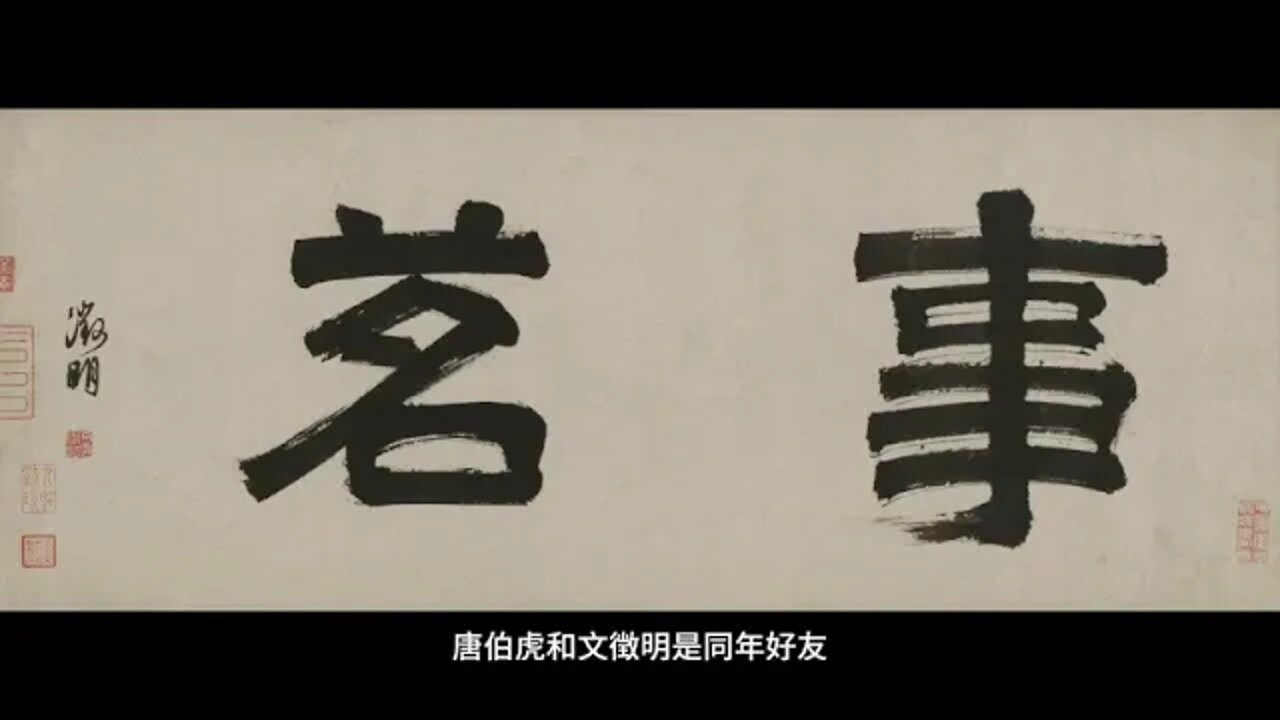 事茗
徵明
唐伯虎和文徵明是同年好友